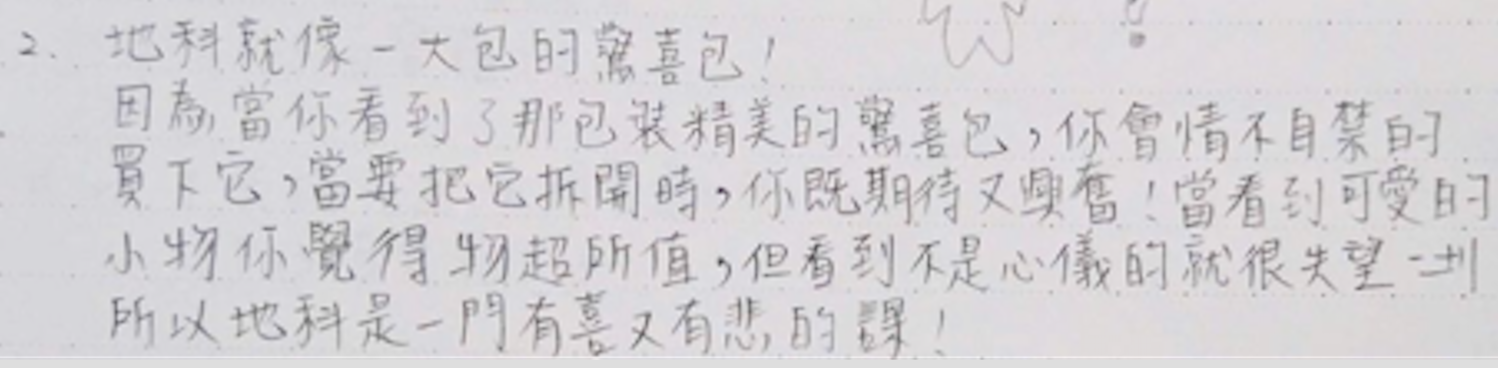 2. 地科就像一大包的驚喜包！
因為當你看到了那包裝精美的驚喜包，你會情不自禁的
買下它，當要把它拆開時，你既期待又興奮！當看到可愛的
小物你覺得物超所值，但看到不是心儀的就很失望
所以地科是一門有喜又有悲的課！